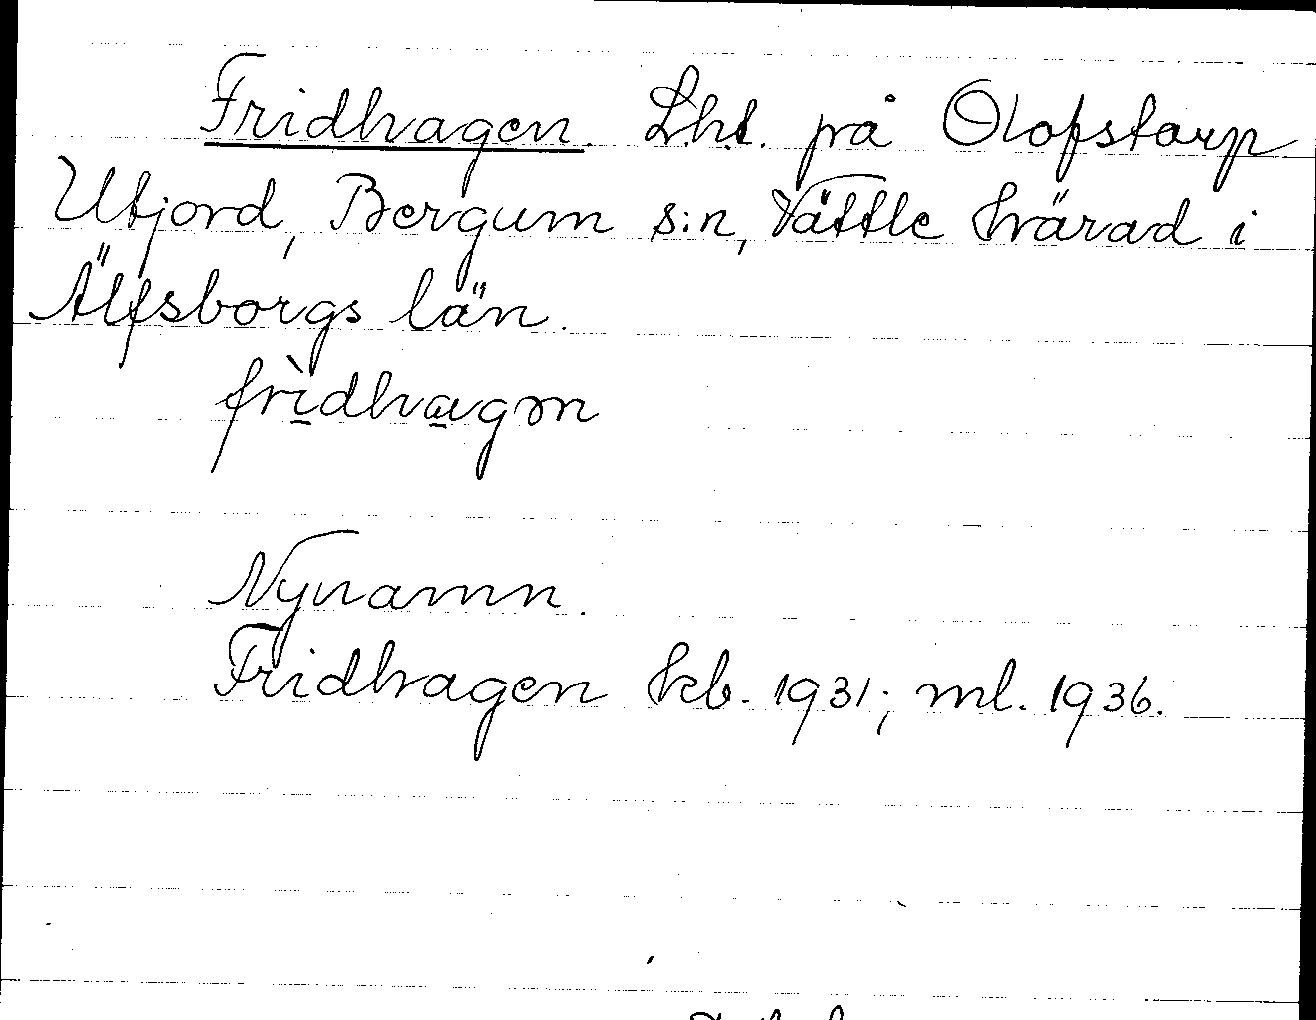 Fridhagen. Lht. på Olofstorp
Utjord, Bergum s:n, Vättle härad i
Älfsborgs län.
frì̱dha̱gən
Nynamn.
Fridhagen kb. 1931; ml. 1936.